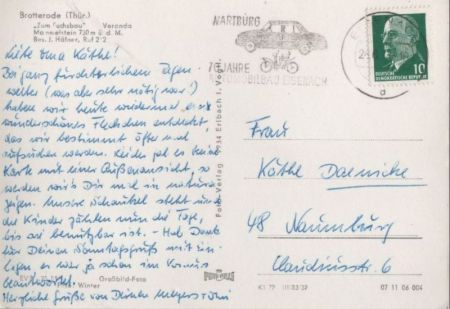 Brotterode (Thür.)
"Zum Fuchsbau" Veranda
Mommelstein 720 m ü. d. M.
Bes. J. Häfner, Ruf 212
Liebe Oma Käthe!
Bei ganz fürchterlichem Regen-
wetter (was aber sehr nötig war!)
haben wir heute wiedermal ein
wunderschönes Fleckchen entdeckt,
das wir bestimmt öfter mal
aufsuchen werden. Leider gab es keine
Karte mit einer Außenansicht, so
werden wir's Dir mal in natura
zeigen. Unsere Schaukel steht und
die Kinder zählen nun die Tage,
bis sie benutzbar ist. - Hab Dank
für Deinen Sonntagsgruß mit
legen es war ja schon im Vornis
beantwortet.
Herzliche Grüße von Deinen
Großbild-Foto
Winter
Foto-Verlag 5934 Erlbach i. Vogtl.
WARTBURG
JAHRE
AUTOMOBILBAU EISENACH
10
DEUTSCHE
DEMOKRATISCHE REPUBLIK
Frau
Käthe Daenicke
48 Naumburg
Claudiusstr. 6
07 11 06 004